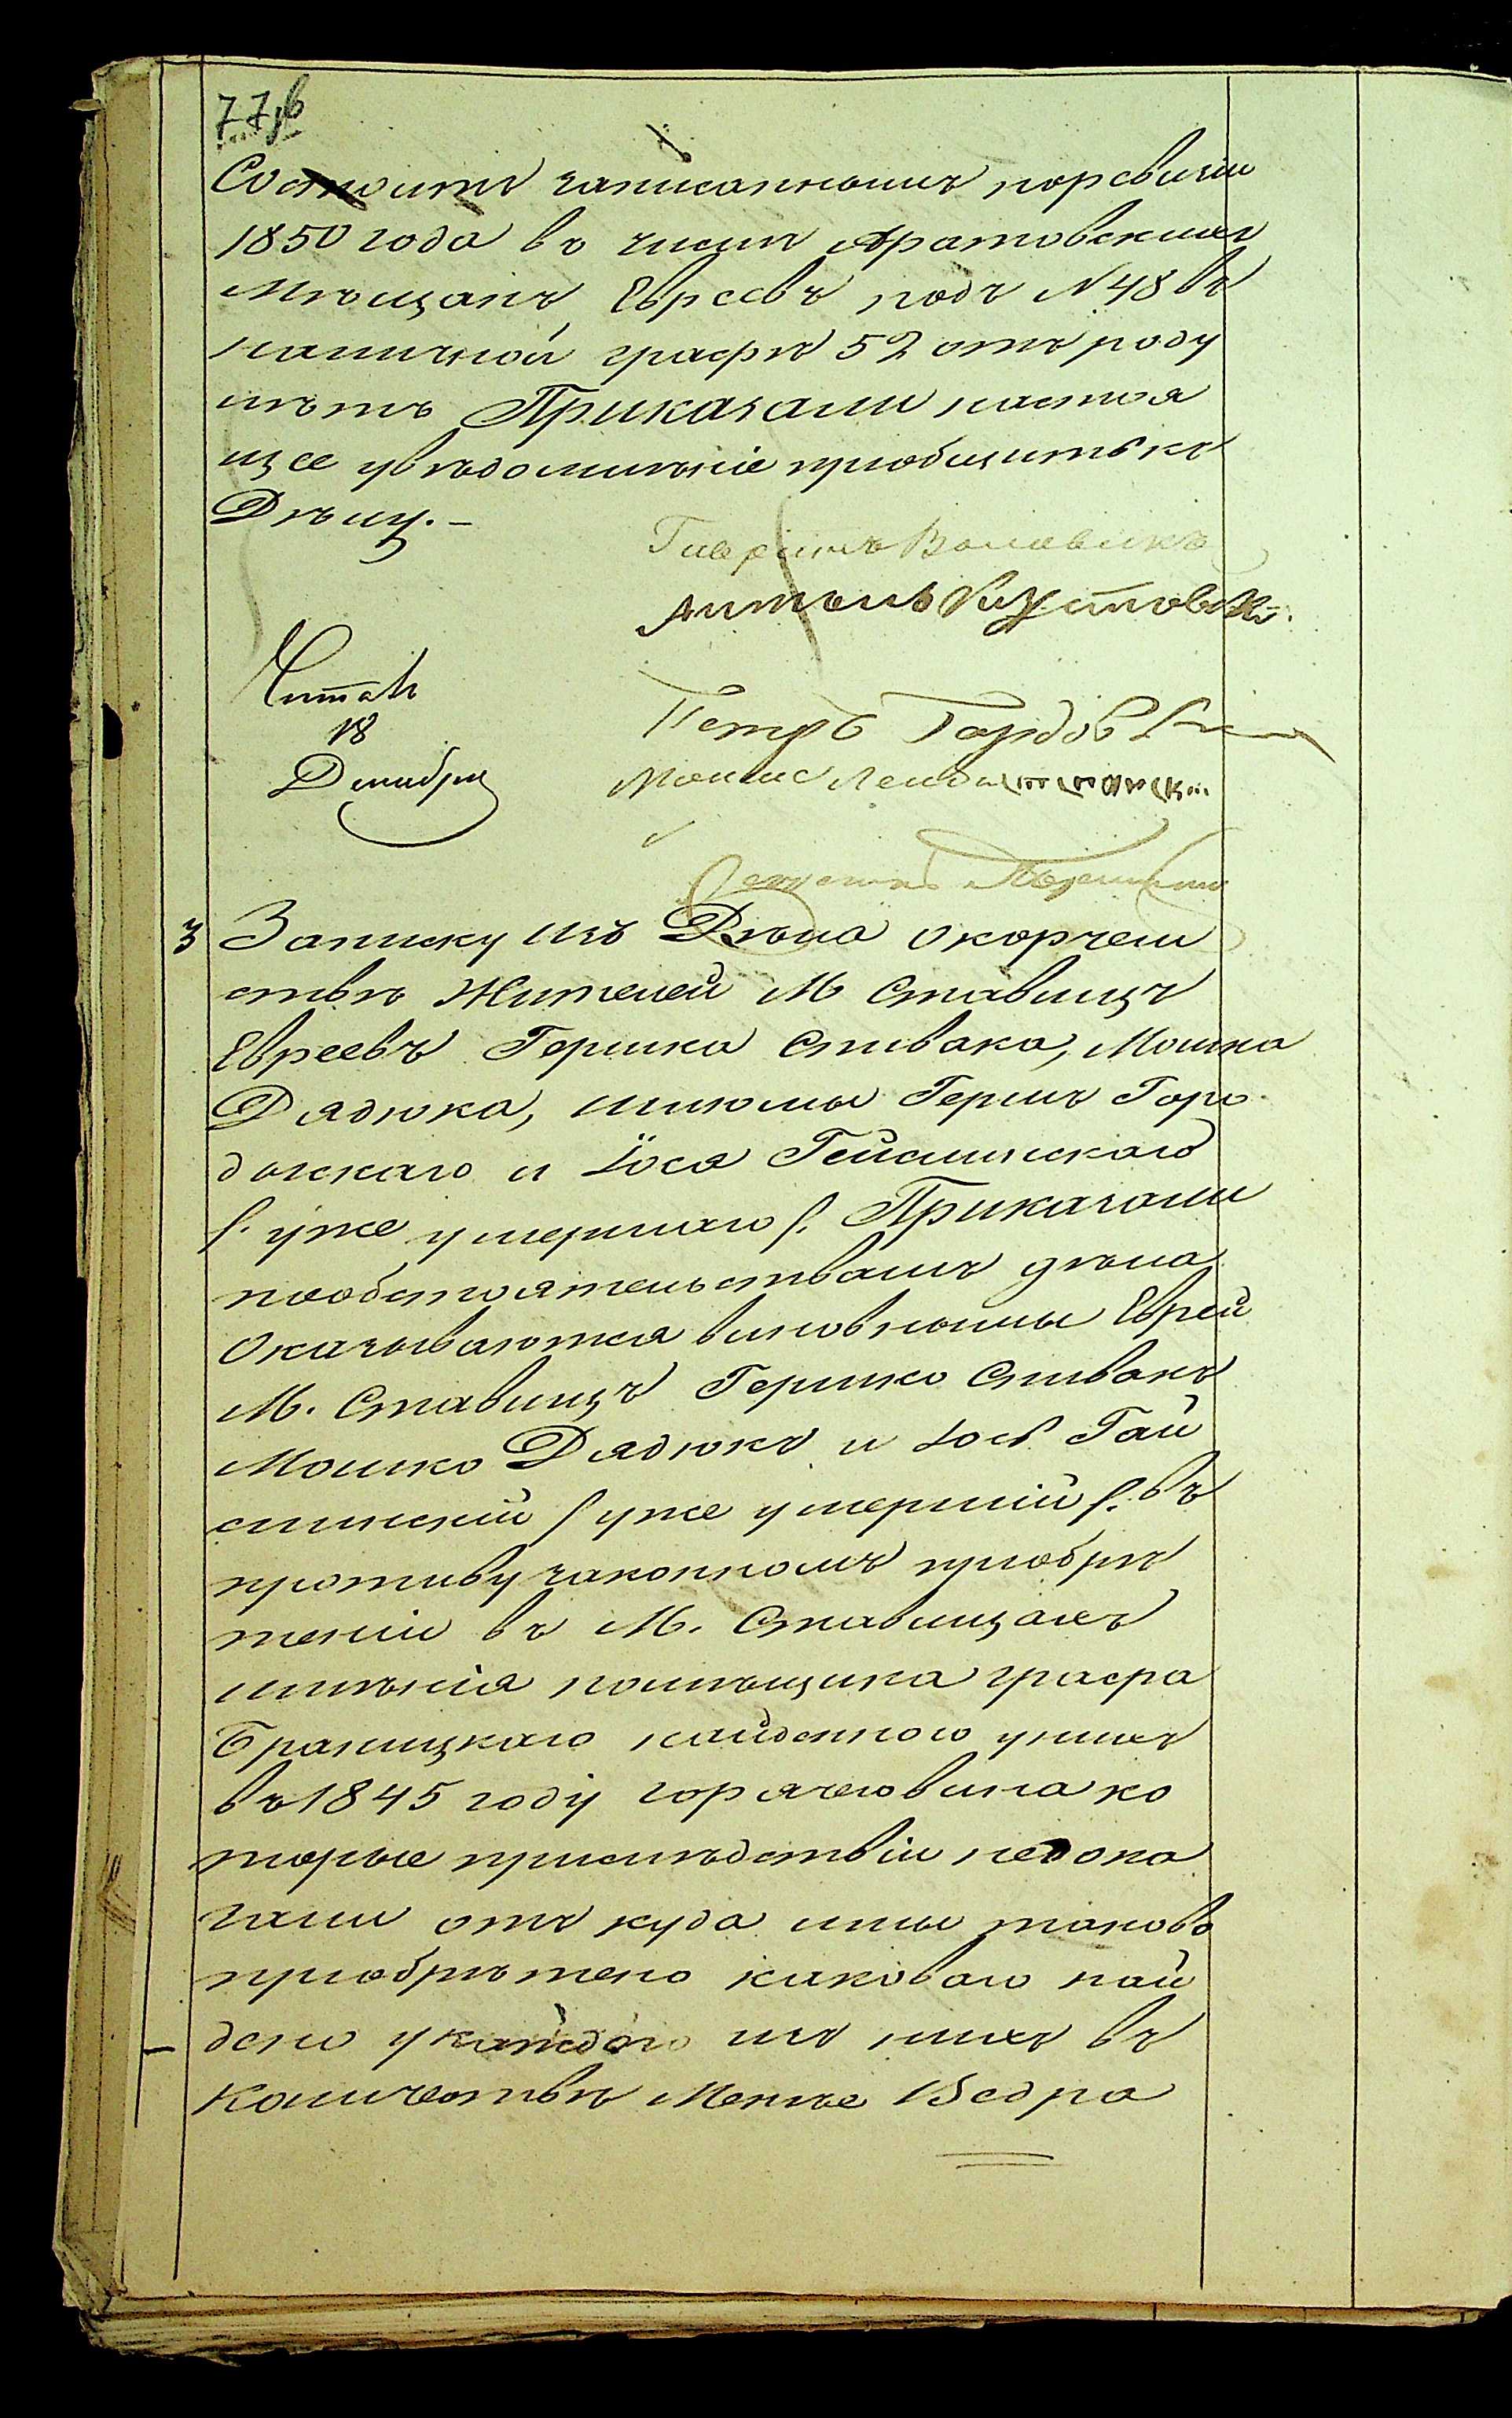 77, b
Состоитъ записаннымъ поревизіи
1850 года въ числѣ Аратовскихъ
Мѣщанъ Евреевъ подъ N 48 въ
наличной графѣ 52 отъ роду
лѣтъ Приказали настоя
щее увѣдомлѣніе приобщить къ
Дѣлу. –
Гаврилъ
Антонъ
Читалъ
18
Декабря
Петръ
Мошис
3 Записку изъ Дѣла окорчем
ствѣ Жителей М Ставищъ
Евреевъ Гершка Спивака, Мошка
Дядюка, Шлюмы Герша Горо
доккаго и Іося Гейсинскаго
/. уже умершаго /. Приказали
пообстоятельствамъ дѣла
Оказываются виновными Евреи
М. Ставищъ Гершко Спивакъ
Мошко Дядюкъ и Іось Гай
синскій / уже умершій /. въ
противузаконномъ приобрѣ
теніи въ М. Ставищахъ
имѣнія помѣщика графа
Браницкаго найденного унихъ
въ 1845 году горячаго вина ко
торые прислѣдствіи недока
зали отъ куда ими таково
приобрѣтено каковаго най
дено укаждого изъ нихъ въ
Количествѣ Менѣе Ведра